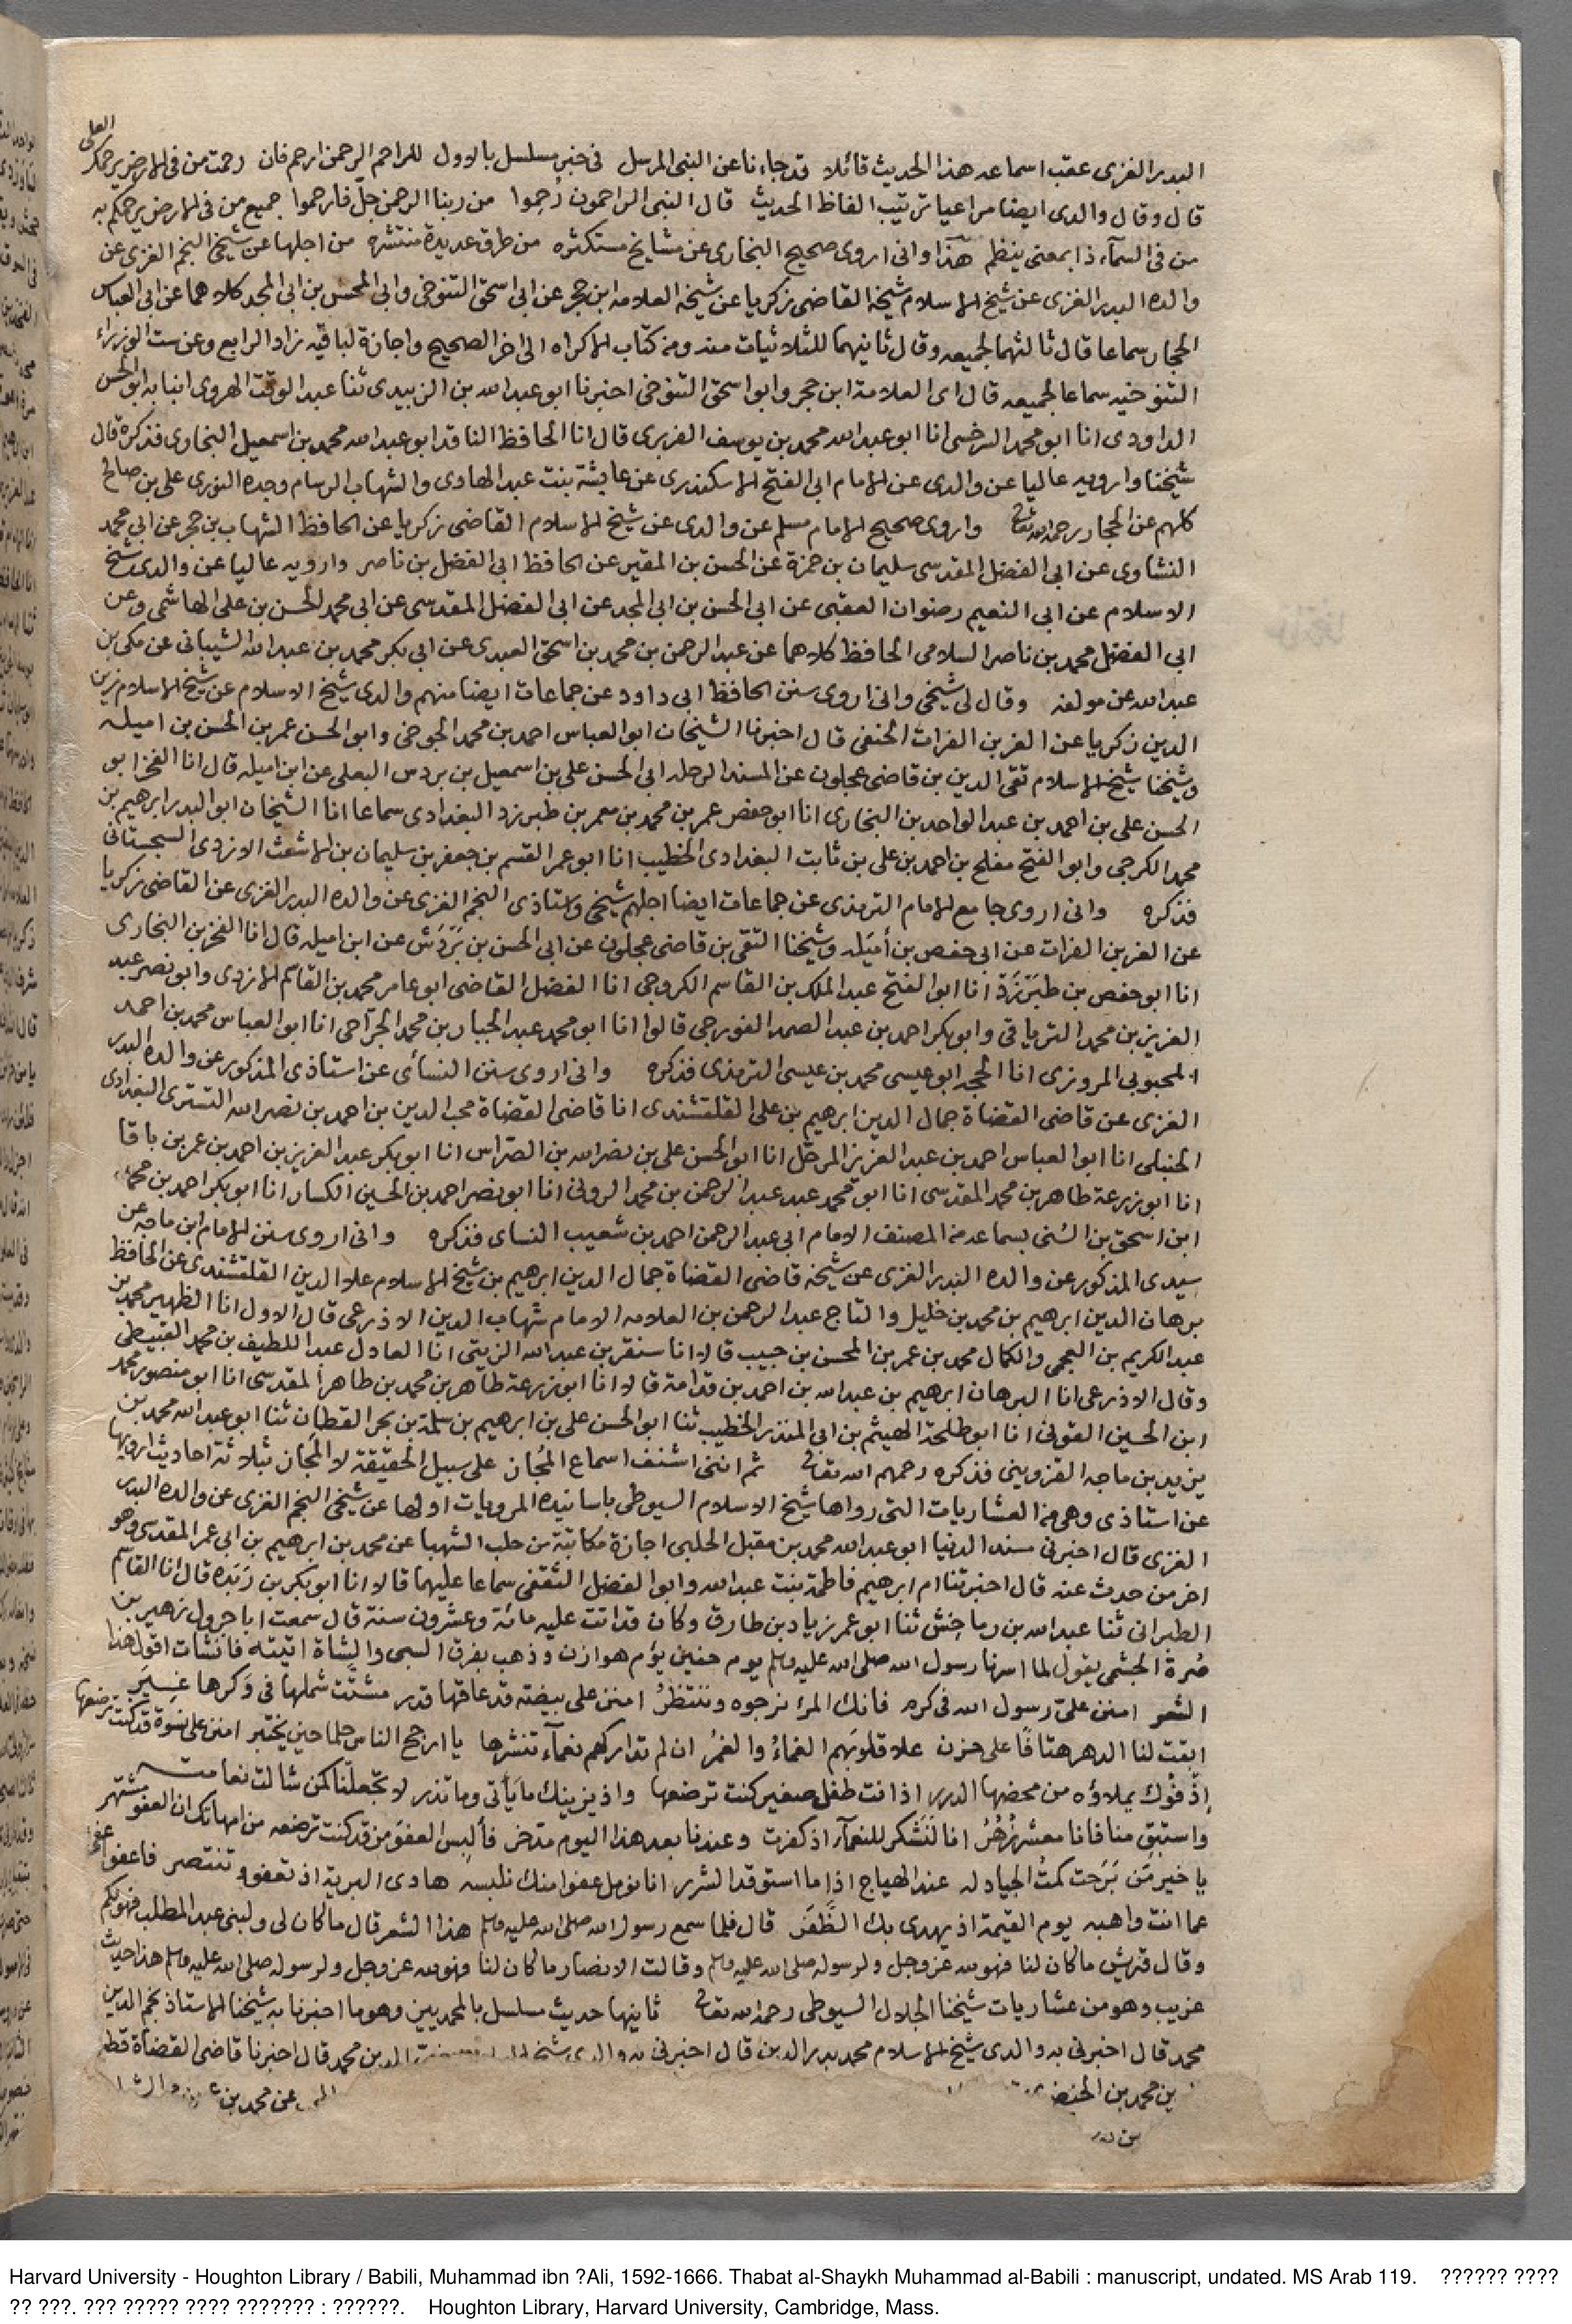 البدر الغزى عقب اسماعه هذا الحديث قائلا قد جاءنا عن النبى المرسل فى خبر مسلسل بالاول للراحم الرحمن ارحم فان رحمت من فى الارض يرحمك العلى
قال وقال والدى ايضا مراعيا ترتيب الفاظ الحديث قال النبى الراحمون رُحِموا من ربنا الرحمن جلّ فارحموا جميع من فى الارض يرحمكم به
من فى السمآء ذا بمعنى ينظم هذا وانى اروى صحيح البخارى عن مشايخ مستكثره من طرق عديدة منتشره من اجلها عن شيخى النجم الغزى عن
والده البدر الغزى عن شيخ الاسلام شيخه القاضى زكريا عن شيخه العلامه ابن حجر عن ابى اسحق التنوخى وابى المحسن بن ابى المجد كلاهما عن ابى العباس
الحجار سماعا قال ثالثهما لجميعه وقال ثانيهما للثلاثيات منه ومن كتاب الاكراه الى اخر الصحيح واجازة لباقيه زاد الرابع وعن ست الوزراء
التنوخيه سماعا لجميعه قال اى العلامة ابن حجر وابو اسحق التنوخى اخبرنا ابو عبدالله بن الزبيدى ثنا عبد الوقت الهروى انبا به ابو الحسن
الداودى انا ابو محمد السرخسى انا ابو عبدالله محمد بن يوسف الفربرى قال انا الحافظ الناقد ابو عبدالله محمد بن اسمعيل البخارى فذكره قال
شيخنا وارويه عاليا عن والدى عن الامام ابى الفتح الاسكندرى عن عايشة بنت عبد الهادى والشهاب الرسام وجده النورى على بن صالح
كلهم عن الحجار رحمه الله تعالى واروى صحيح الامام مسلم عن والدى عن شيخ الاسلام القاضى زكريا عن الحافظ الشهاب بن حجر عن ابى محمد
النشاوى عن ابى الفضل المقدسى سليمان بن حمزة عن الحسن بن المقير عن الحافظ ابى الفضل بن ناصر وارويه عاليا عن والدى شيخ
الاسلام عن ابى النعيم رضوان العقبى عن ابى الحسن بن ابى المجد عن ابى الفضل المقدسى عن ابى محمد الحسن بن على الهاشمى وعن
ابى الفضل محمد بن ناصر السلامى الحافظ كلاهما عن عبد الرحمن بن محمد بن اسحق العبدى عن ابى بكر محمد بن عبدالله الشيبانى عن مكى بن
عبدالله عن مولفه وقال لى شيخى وانى اروى سنن الحافظ ابى داود عن جماعات ايضا منهم والدى شيخ الاسلام عن شيخ الاسلام زين
الدين زكريا عن العز بن الفرات الحنفى قال اخبرنا الشيخان ابو العباس احمد بن محمد الجوخى وابو الحسن عمر بن الحسن بن اميله
وشيخنا شيخ الاسلام تقى الدين بن قاضى عجلون عن المسند الرحله ابى الحسن على بن اسمعيل بن بردس البعلى عن ابن اميله قال انا الفخر ابو
الحسن على بن احمد بن عبد الواحد بن البخارى انا ابو حفص عمر بن محمد بن معمر بن طبرزد البغدادى سماعا انا الشيخان ابو البدر ابرهيم بن
محمد الكرجى وابو الفتح مفلح بن احمد بن على بن ثابت البغدادى الخطيب انا ابو عمر القسم بن جعفر بن سليمان بن الاشعث الازدى السجستانى
فذكره وانى اروى جامع الامام الترمذى عن جماعات ايضا اجلهم شيخى واستاذى النجم الغزى عن والده البدر الغزى عن القاضى زكريا
عن العز بن الفرات عن ابى حفص بن أميَله وشيخنا التقى بن قاضى عجلون عن ابى الحسن بن بَرْدَس عن ابن اميله قال انا الفخر بن البخارى
انا ابو حفص بن طبَرْزَدْ انا ابو الفتح عبد الملك بن القاسم الكروجى انا الفضل القاضى ابو عامر محمد بن القاسم الازدى وابو نصر عبد
العزيز بن محمد الترياقى وابو بكر احمد بن عبد الصمد الغورجى قالوا انا ابو محمد عبد الجبار بن محمد الجرآحى انا ابو العباس محمد بن احمد
المحبوبى المروزى انا الحجه ابو عيسى محمد بن عيسى الترمذى فذكره وانى اروى سنن النسائى عن استاذى المذكور عن والده البدر
الغزى عن قاضى القضاة جمال الدين ابرهيم بن على القلقشندى انا قاضى القضاة محب الدين بن احمد بن نصر الله التسترى البغدادى
الحنبلى انا ابو العباس احمد بن عبد العزيز المرحّل انا ابو الحسن على بن نصر الله بن الصّراس انا ابو بكر عبد العزيز بن احمد بن عمر بن باقا
انا ابو زرعة طاهر بن محمد المقدسى انا ابو محمد عبد عبد الرحمن بن محمد الرونى انا ابو نصر احمد بن الحسين الكسار انا ابو بكر احمد بن محمد
ابن اسحق بن السُنى بسماعه من المصنف الامام ابى عبد الرحمن احمد بن شعيب النساى فذكره وانى اروى سنن الامام ابن ماجه عن
سيدى المذكور عن والده البدر الغزى عن شيخه قاضى القضاة جمال الدين ابرهيم بن شيخ الاسلام علا الدين القلقشندى عن الحافظ
برهان الدين ابرهيم بن محمد بن خليل والتاج عبد الرحمن بن العلامه الامام شهاب الدين الاذرعى قال الاول انا الظهير محمد بن
عبد الكريم بن العجمى والكمال محمد بن عمر بن المحسن بن حبيب قالا انا سنقر بن عبدالله الزينى انا العادل عبد اللطيف بن محمد القبيطى
وقال الاذرعى انا البرهان ابرهيم بن عبدالله بن احمد بن قدامة قالا انا ابو زرعة طاهر بن محمد بن طاهر المقدسى انا ابو منصور محمد
ابن الحسين القونى انا ابو طلحة الهيثم بن ابى المنذر الخطيب ثنا ابو الحسن على بن ابرهيم بن سلمة بن بحر القطان ثنا ابو عبدالله محمد بن
يزيد بن ماجه القزوينى فذكره رحمهم الله تعالى ثم اننى اشنف اسماع المُجان على سبيل الحقيقة لا المَجان بثلاثة احاديث ارويها
عن استاذى وهى من العشاريات التى رواها شيخ الاسلام السيوطى باسانيده المرويات اولها عن شيخى النجم الغزى عن والده البدر
الغزى قال اخبرنى مسند الدنيا ابو عبدالله محمد بن مقبل الحلبى اجازة مكاتبة من حلب الشهبا عن محمد بن ابرهيم بن ابى عمر المقدسى وهو
اخر من حدث عنه قال اخبرتنا ام ابرهيم فاطمة بنت عبدالله وابو الفضل الثقفى سماعا عليهما قالا انا ابو بكر بن رَيذه قال انا القاسم
الطبرانى ثنا عبدالله بن رماجِش ثنا ابو عمر زياد بن طارق وكان قد اتت عليه مائة وعشرون سنة قال سمعت ابا جرول زهير بن
صُرة الجشمى يقول لما اسرنا رسول الله صلى الله عليه وسلم يوم حنين يؤم هوازن وذهب يفرق السبى والشاة اتيته فانشات اقول هذا
الشعر امنن علىّ رسول الله فى كرم فانك المرء نرجوه وننتظرُ امنن على بيضته قد عاقها قدر مشتّت شملها فى دَكرها غِيَرَ
ابقت لنا الدهر هتافًا على حزن على قلوبهم الغماءُ والغمرُ ان لم تداركهم نعمآء تنشرها يا ارجح الناس حلما حين يختبر امنن على نسوة قد كنت ترضعها
إذ فُوْك يملاؤه من محضها الدرر اذ انت طفل صغير كنت ترضعها واذ يزينك ما يأتى وما تذر لا تجعلنّا كمن شالت نعامته
واستبق منا فانا معشر زُهُرُ انا لَنَشكر للنعمآء اذ كفرت وعندنا بعد هذا اليوم مدّخر فألبِس العفوَ من قد كنت ترضعه من امهاتك ان العفو مشتهر
يا خير مَن بَرَحت كمتُ الجياد له عند الهياج اذا ما استوقد الشرر انا نؤمل عفوا منك نلبسه هادى البرية اذ تعفو وتنتصر فاعفوا عفى الله
عما انت واهبه يوم القيمة اذ يهدى بك الظَّفَرَ قال فلما سمع رسول الله صلى الله عليه وسلم هذا الشعر قال ما كان لى ولبنى عبد المطلب فهو لكم
وقال قريش ما كان لنا فهو لله عز وجل ولرسوله صلى الله عليه وسلم وقالت الانصار ما كان لنا فهو لله عز وجل ولرسوله صلى الله عليه وسلم هذا حديث
غريب وهو من عشاريات شيخنا الجلال السيوطى رحمه الله تعالى ثانيها حديث مسلسل بالمحمديين وهو ما اخبرنا به شيخنا الاستاذ نجم الدين
محمد قال اخبرنى به والدى شيخ الاسلام محمد بدر الدين قال اخبرنى به والدى شيخ الدين محمد قال اخبرنا قاضى القضاة قطب
بن محمد بن عن محمد بن
بن
Harvard University - Houghton Library / Babili, Muhammad ibn ?Ali, 1592-1666. Thabat al-Shaykh Muhammad al-Babili : manuscript, undated. MS Arab 119. ?????? ????
?? ???. ??? ????? ???? ??????? : ??????. Houghton Library, Harvard University, Cambridge, Mass.